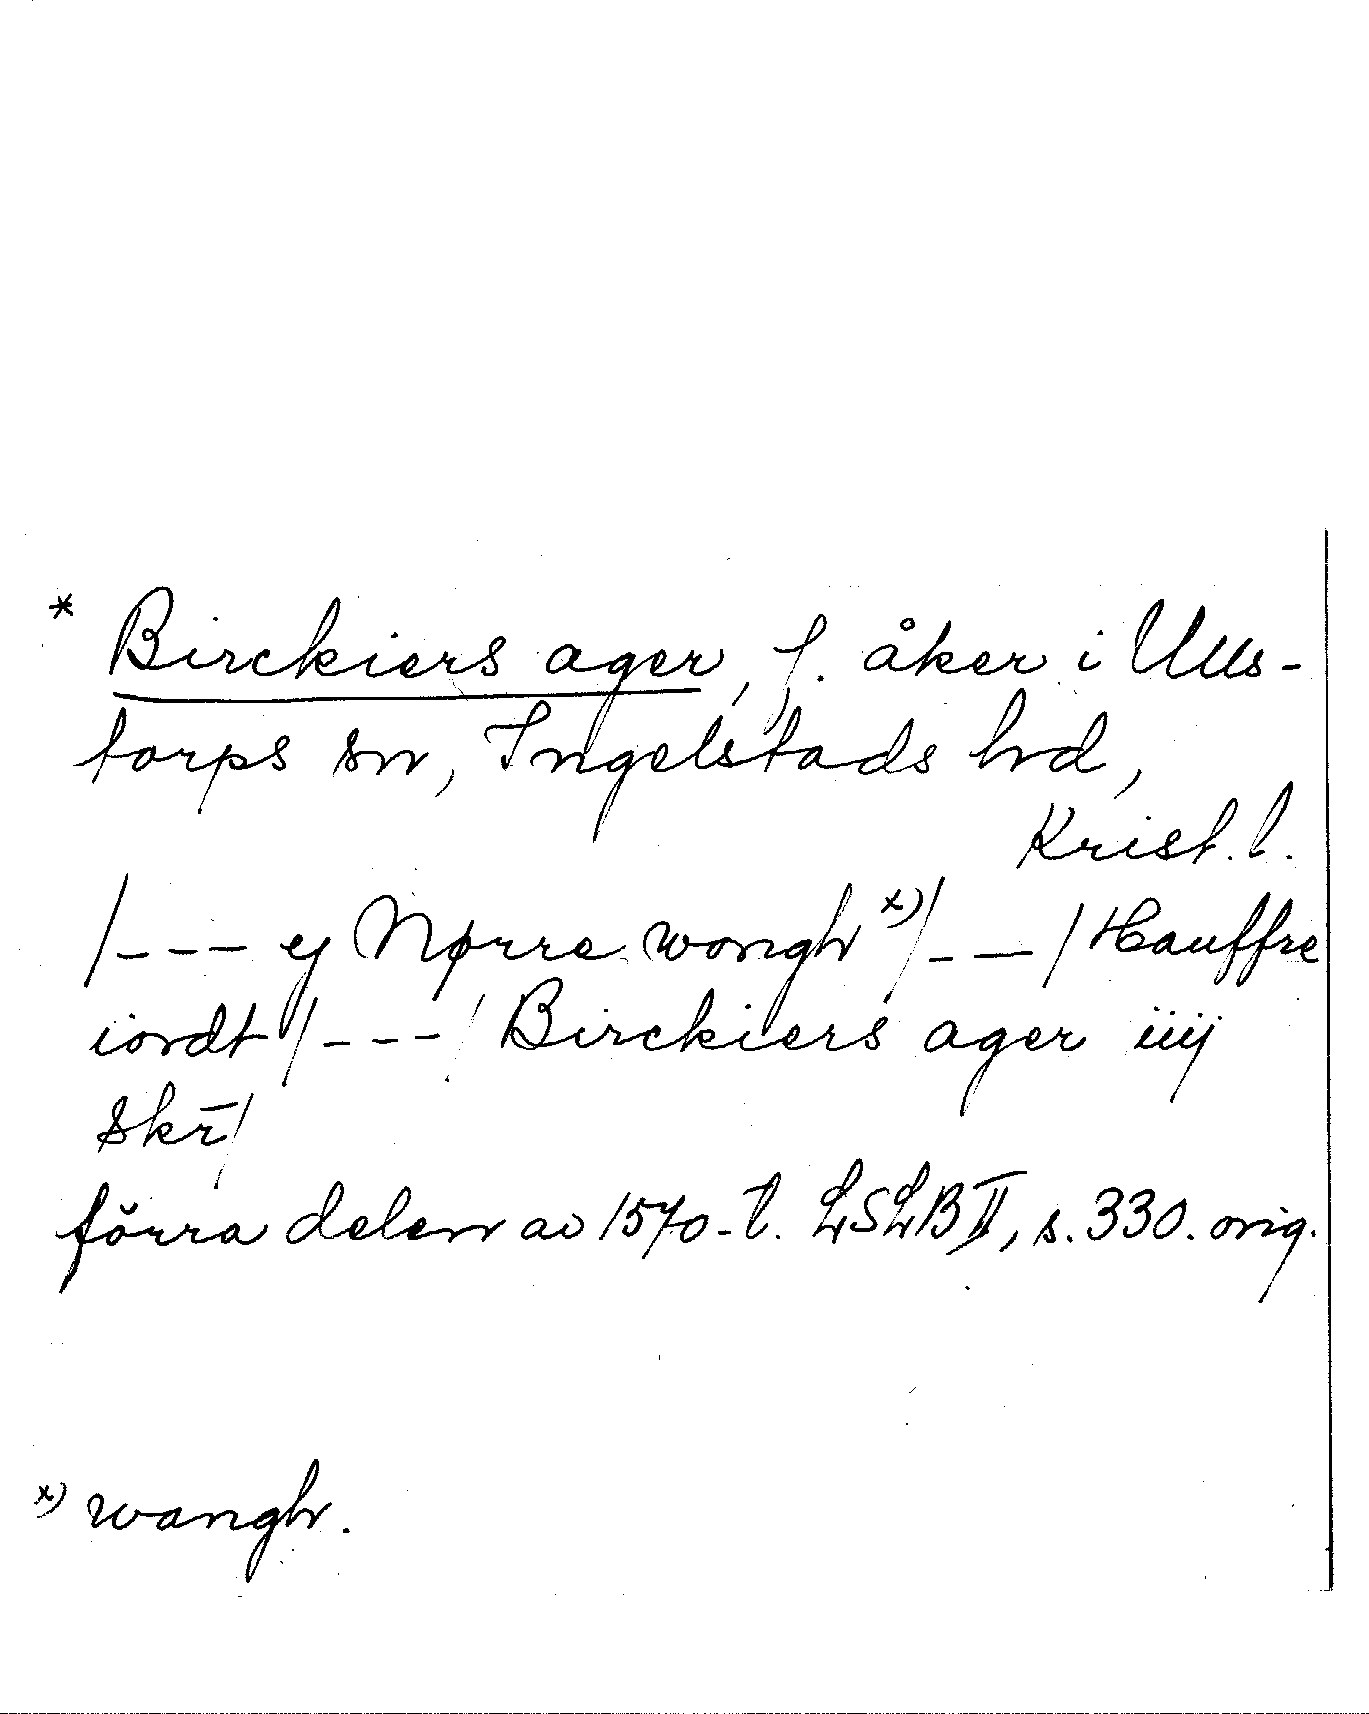 * Birckiers ager, f. åker i Ulls-
torps sn, Ingelstads hd,
Krist. l.
/--- ej Nørre wongh x)/---/ Hauffre
iordt /---/ Birckiers ager iiij
skr̄/
förra delen av 1570-t. LSLB II, s. 330. orig.
x) wangh.